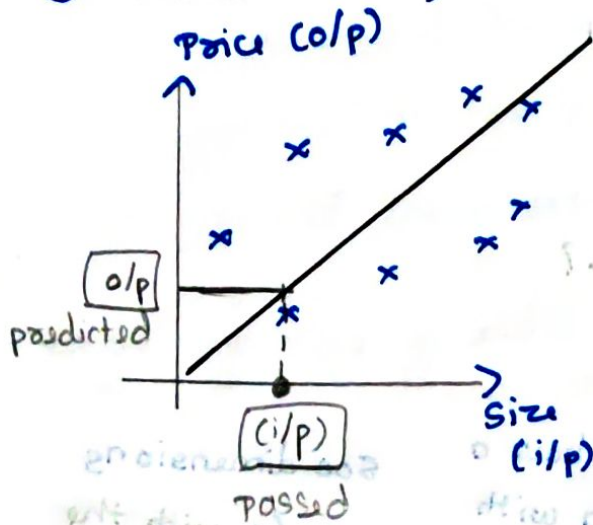 Price (o/p)
o/p
predicted
(i/p)
passed
Size
(i/p)